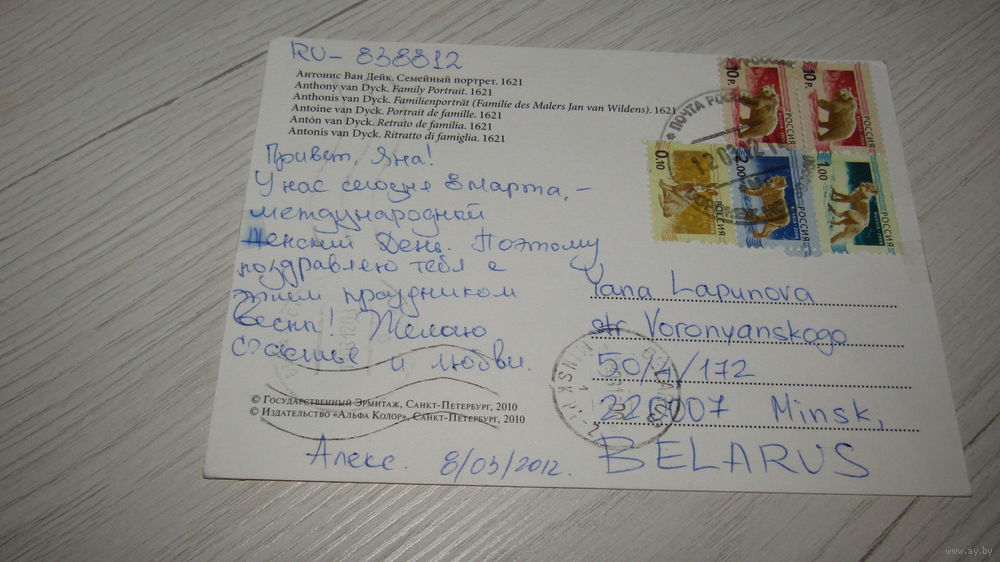 RU-838812
Антонис Ван Дейк. Семейный портрет. 1621
Anthony van Dyck. Family Portrait. 1621
Anthonis van Dyck. Familienporträt (Familie des Malers Jan van Wildens). 1621
Antoine van Dyck. Portrait de famille. 1621
Antón van Dyck. Retrato de familia. 1621
Antonis van Dyck. Ritratto di famiglia. 1621
Привет, Яна!
У нас сегодня 8 марта, -
международный
женский День. Поэтому
поздравляю тебя с
этим праздником
весны! Желаю
счастье и любви.
© Государственный Эрмитаж, Санкт-Петербург, 2010
© Издательство «Альфа Колор», Санкт-Петербург, 2010
Алекс. 8/03/2012.
10р.
РОССИЯ
10р.
РОССИЯ
0.10
РОССИЯ
2.00
РОССИЯ
1.00
РОССИЯ
ПОЧТА РОС
Yana Lapunova
str Voronyanskogo
50/4/172
220007 Minsk,
BELARUS
MINSK
www.ay.by